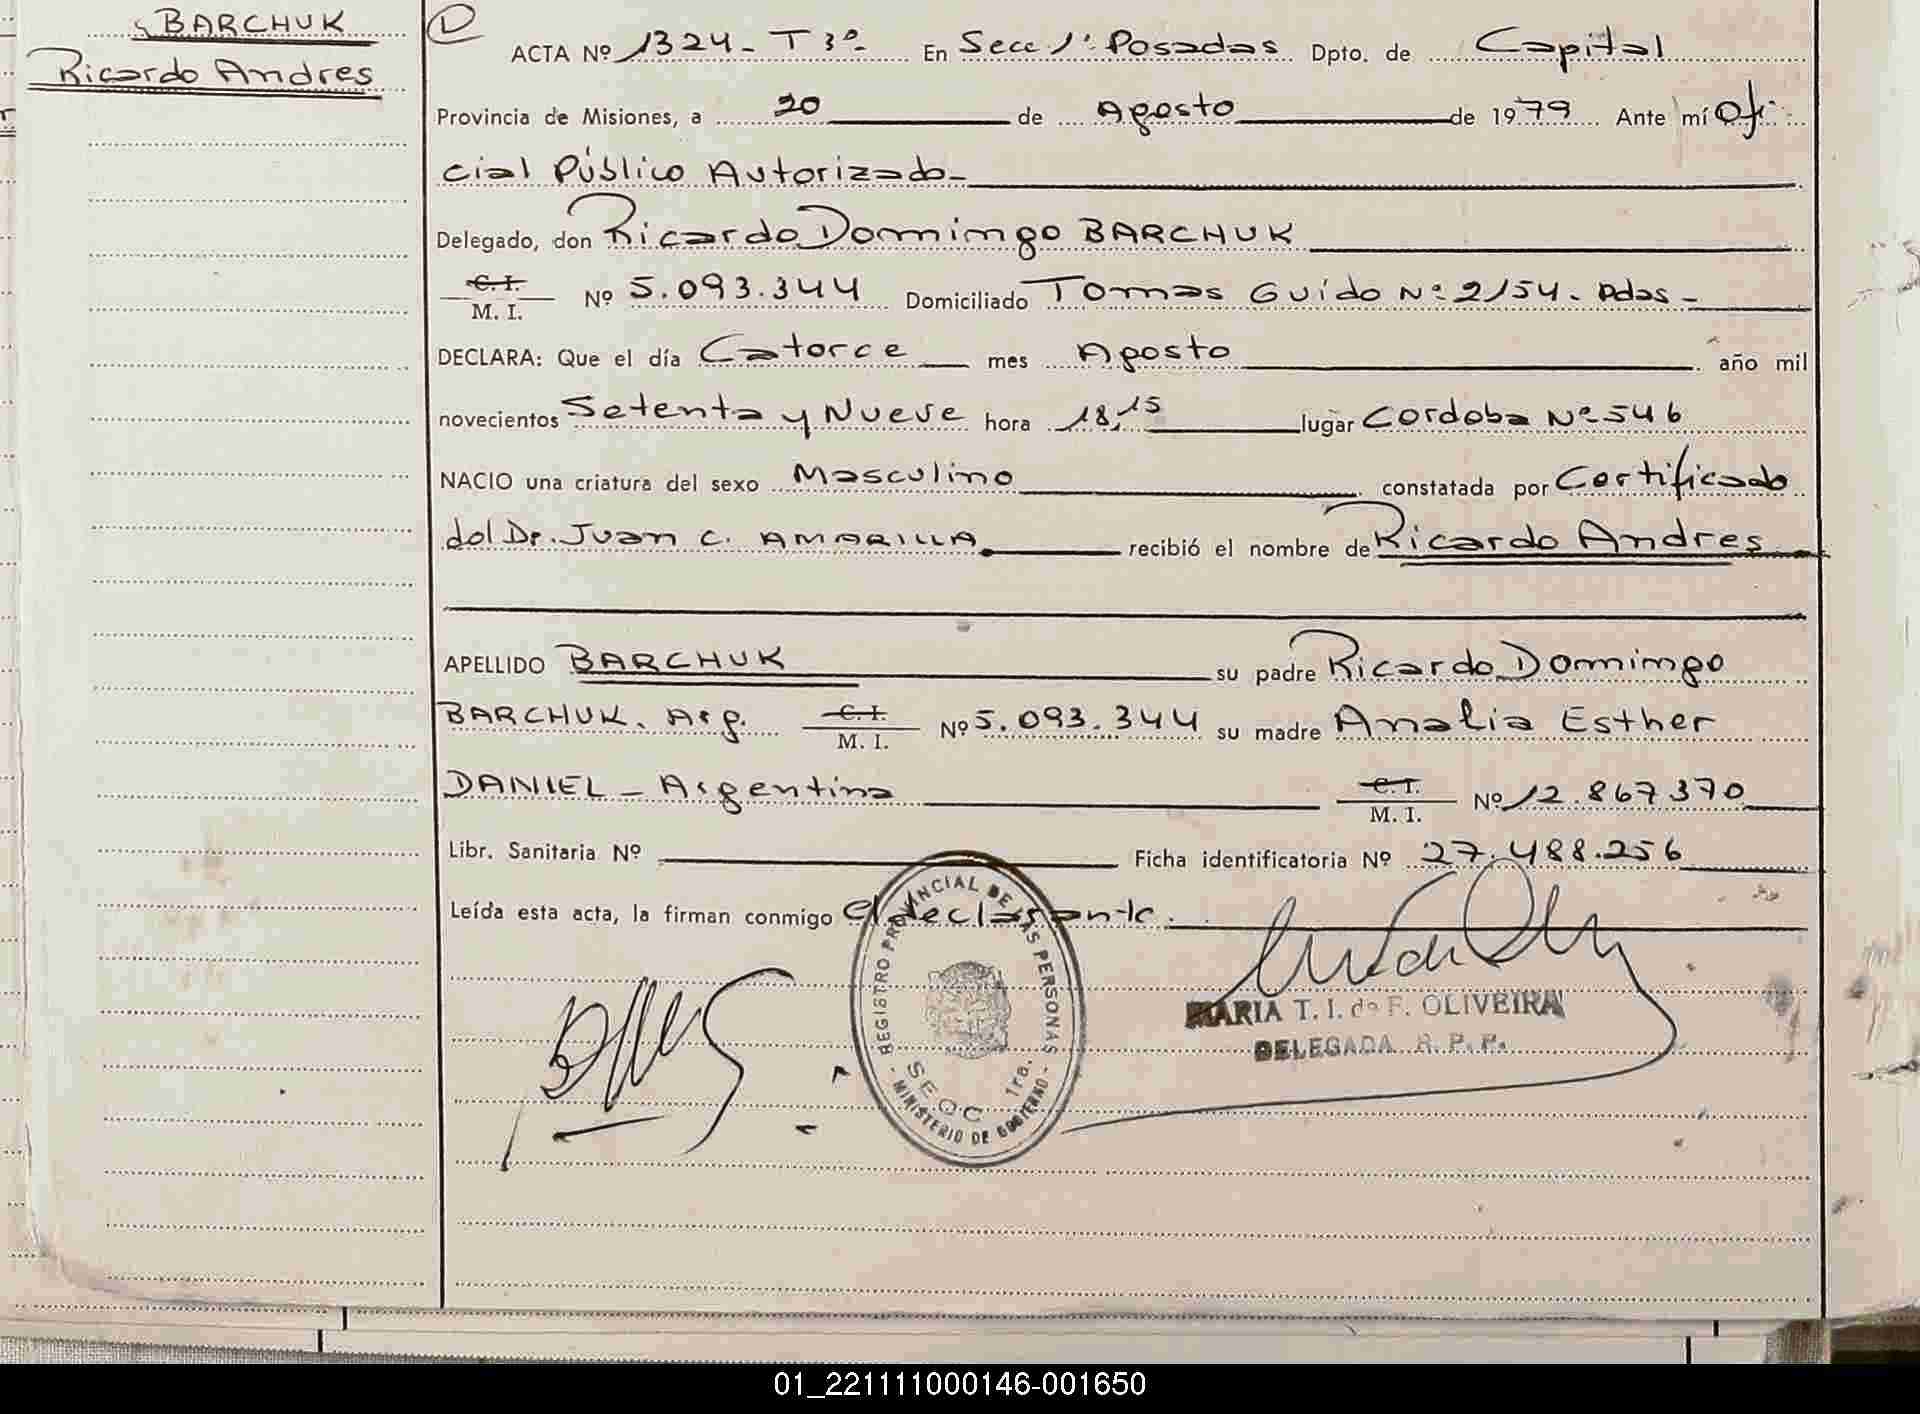 BARCHUK
Ricardo Andres
ACTA Nº 1324- T 3º- En Secc 1ª Posadas Dpto. de Capital
Provincia de Misiones, a 20 de Agosto de 1979 Ante mí Ofi
cial Público Autorizado-
Delegado, don Ricardo Domingo BARCHUK
C. I.
M. I. Nº 5.093.344 Domiciliado Tomas Guido Nº 2154. Pdas-
DECLARA: Que el día Catorce mes Agosto año mil
novecientos Setenta y Nueve hora 18,15 lugar Cordoba Nº 546
NACIO una criatura del sexo Masculino constatada por Certificado
del Dr. Juan C. AMARILLA recibió el nombre de Ricardo Andres
APELLIDO BARCHUK su padre Ricardo Domingo
BARCHUK. Arg. C. I.
M. I. Nº 5.093.344 su madre Analia Esther
DANIEL - Argentina C. I.
M. I. Nº 12.867370
Libr. Sanitaria Nº Ficha identificatoria Nº 27.488.256
Leída esta acta, la firman conmigo el declarante.
REGISTRO PROVINCIAL DE LAS PERSONAS
SECC 1ra.
- MINISTERIO DE GOBIERNO -
MARIA T. I. de F. OLIVEIRA
DELEGADA R. P. P.
01_221111000146-001650